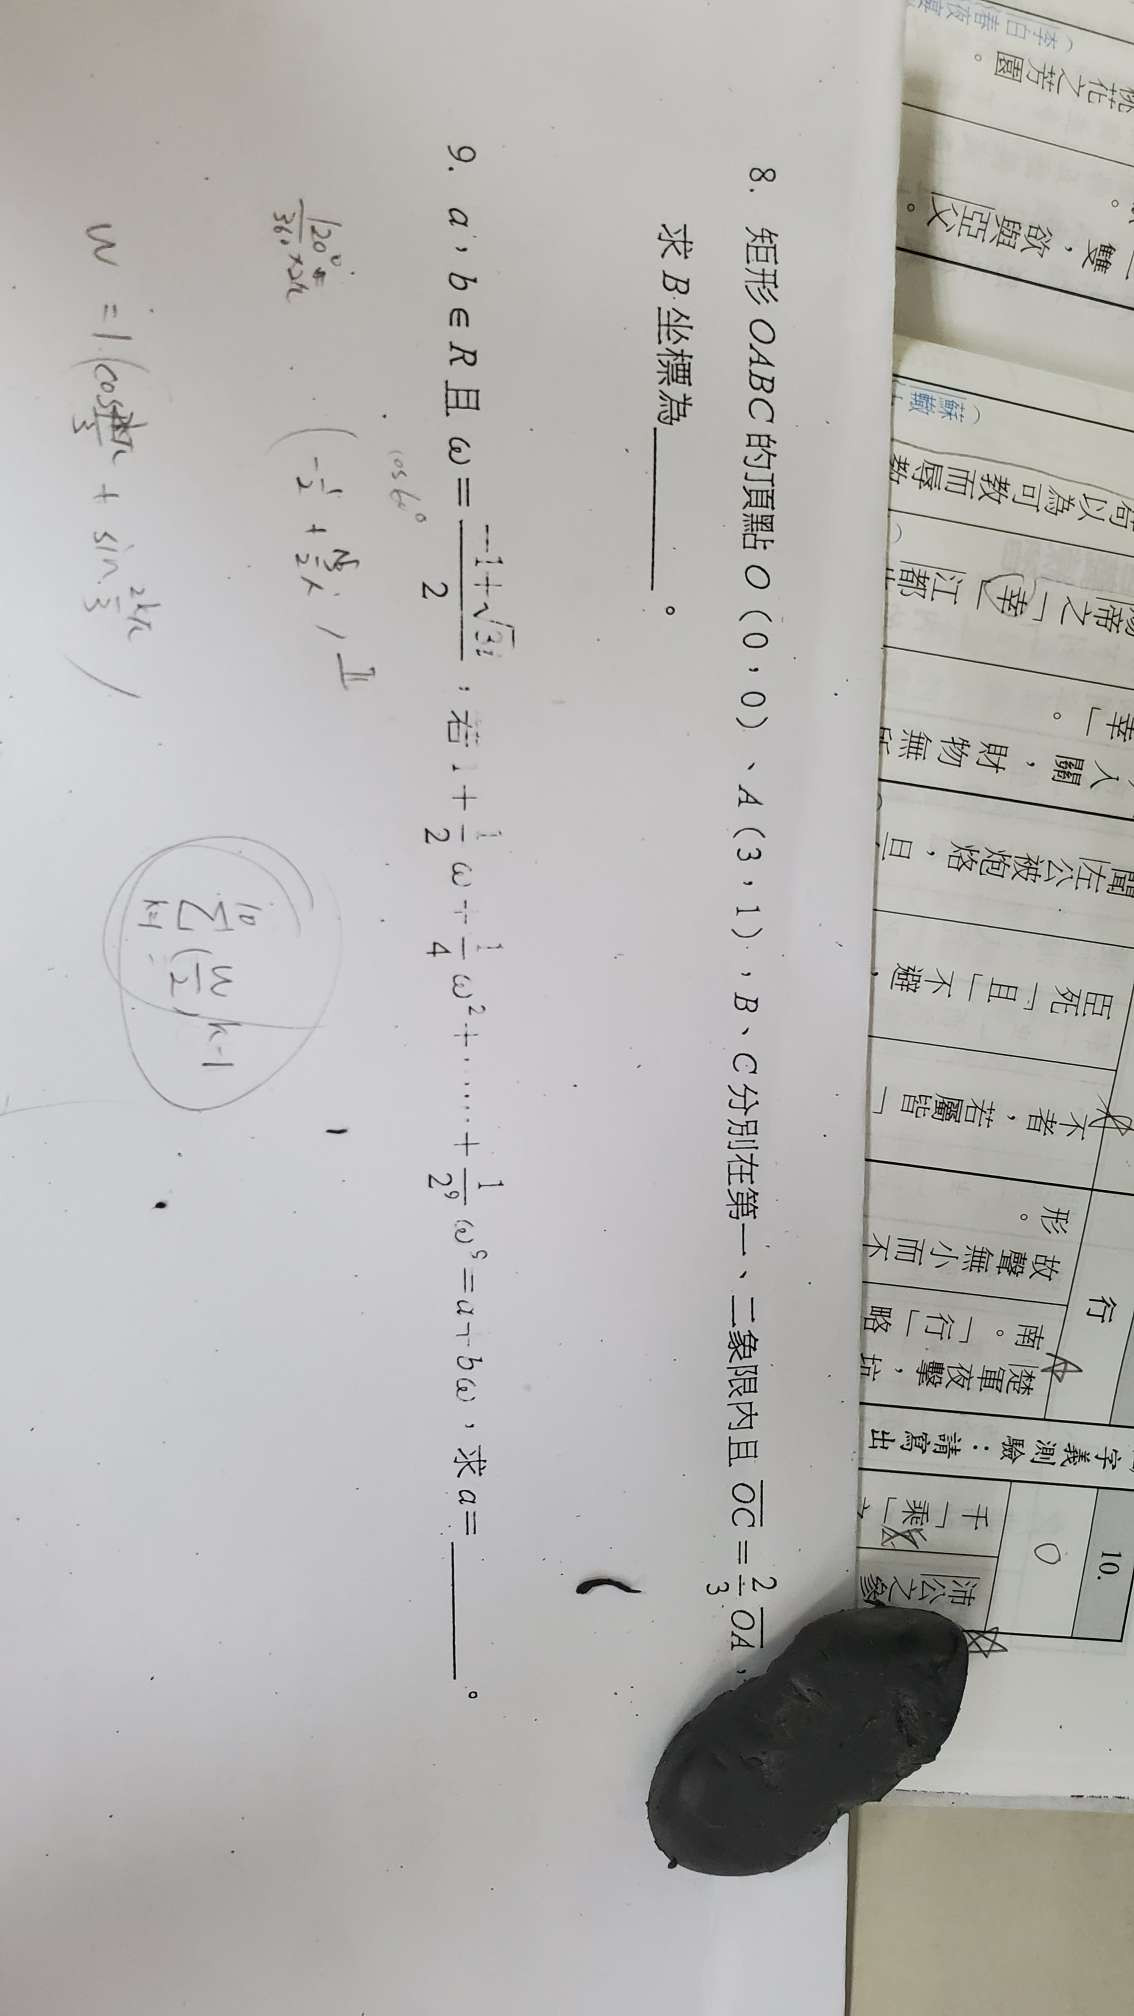 8. 矩形 OABC 的頂點 O (0,0)、A (3,1),B、C 分別在第一、二象限內且 \overline{OC} = \frac{2}{3} \overline{OA},
求 B 坐標為______。
9. a,b ∈ R 且 ω = \frac{-1+\sqrt{3}i}{2},若 1 + \frac{1}{2} ω + \frac{1}{4} ω^2 + …… + \frac{1}{2^9} ω^9 = a + bω,求 a = ______。
cos 60°
(-\frac{1}{2} + \frac{\sqrt{3}}{2} i), II
\sum_{k=1}^{10} (\frac{w}{2})^{k-1}
(李白春夜宴
桃花之芳園。
一雙,欲與亞父。
(蘇軾
可以為可教而辱
煬帝之「幸」江都
幸」。
入關,財物無
聞左公被炮烙,旦
臣死「且」不避,
不者,若屬皆「
行
形。
故聲無小而不
南。「行」略
楚軍夜擊,坑
字義測驗:請寫出
10.
0
千「乘」
沛公之參